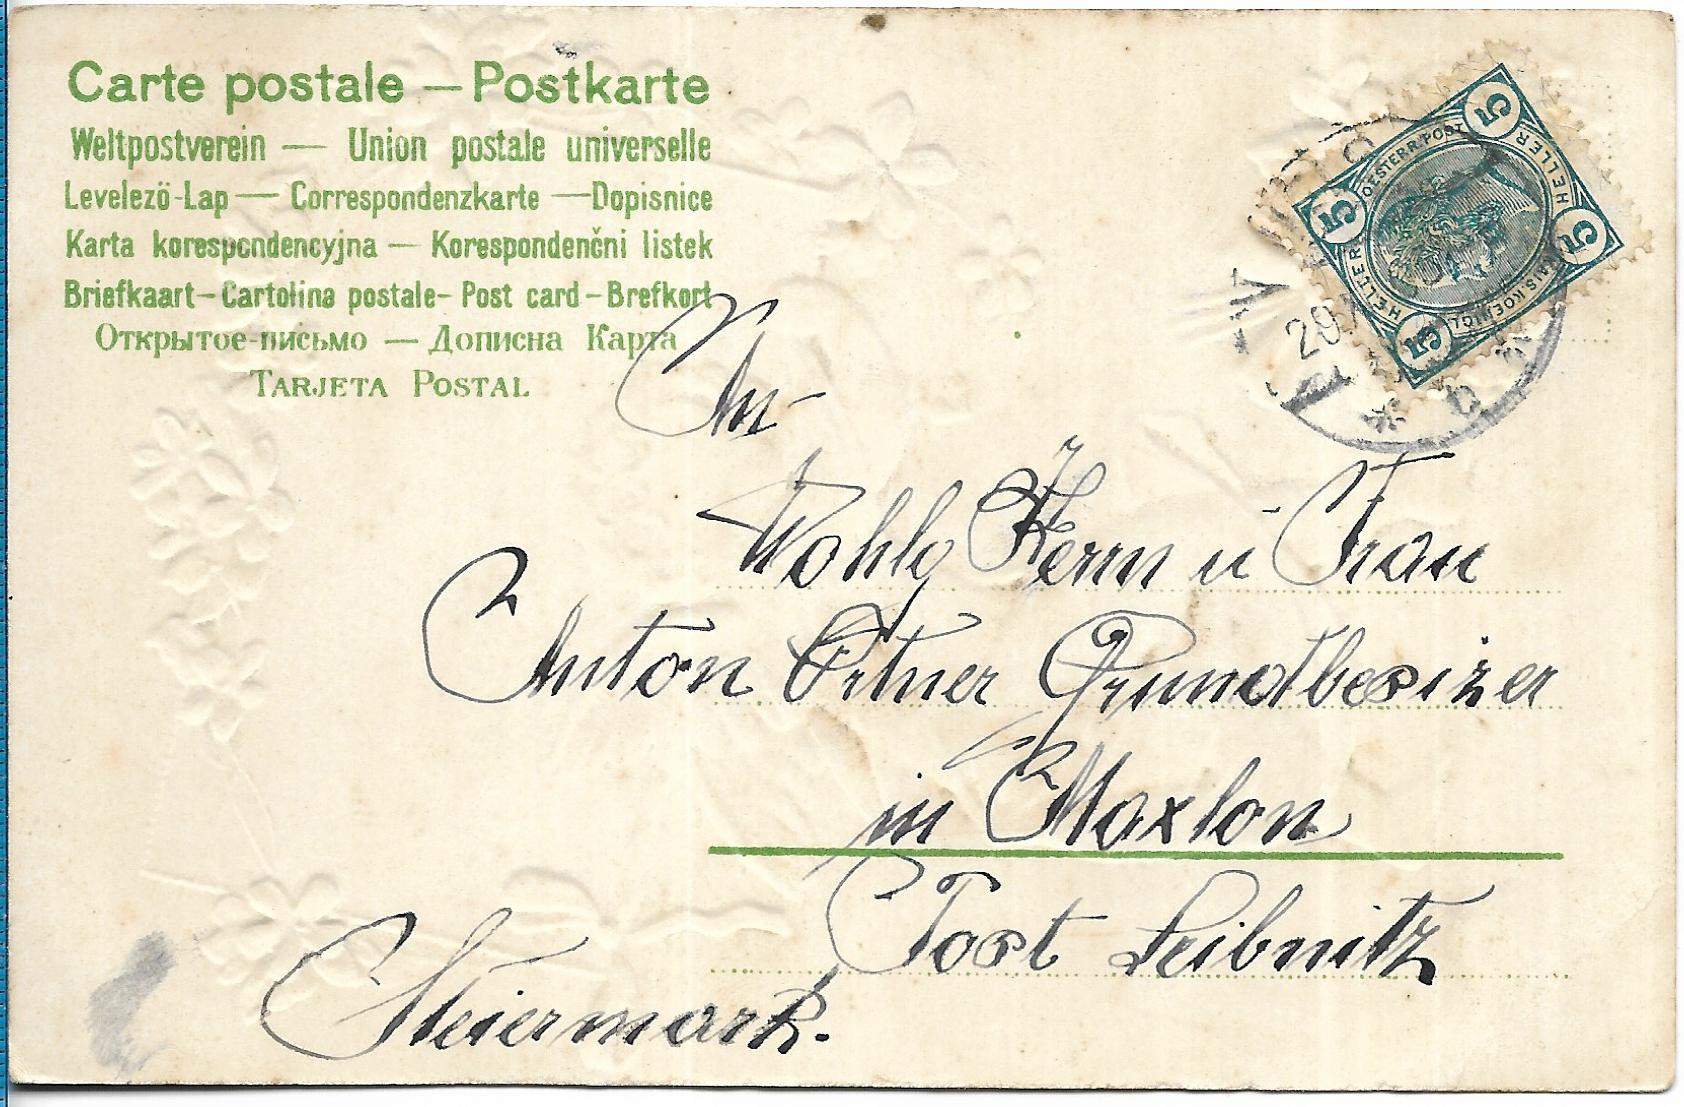 Carte postale — Postkarte
Weltpostverein — Union postale universelle
Levelező-Lap — Correspondenzkarte — Dopisnice
Karta korespondencyjna — Korespondenčni listek
Briefkaart - Cartolina postale - Post card - Brefkort
Открытое-письмо — Дописна Карта
TARJETA POSTAL
5 5 5 5
OESTERR. POST
HELLER HELLER
KAIS. KOENIGL.
29
An
Wohlg Herrn u Frau
Anton Ortner Grundbesizer
in Maxlon
Post Leibnitz
Steiermark.